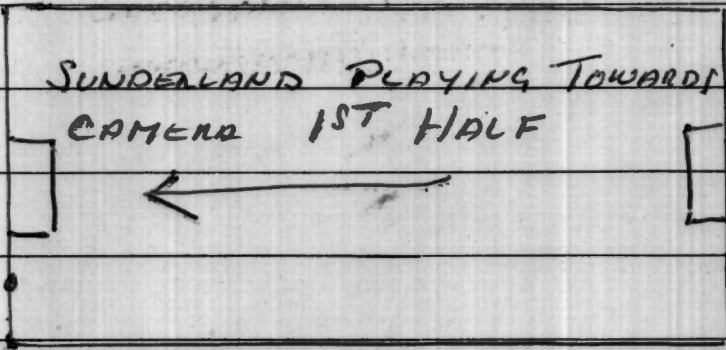 SUNDERLAND PLAYING TOWARDS
CAMERA 1ST HALF